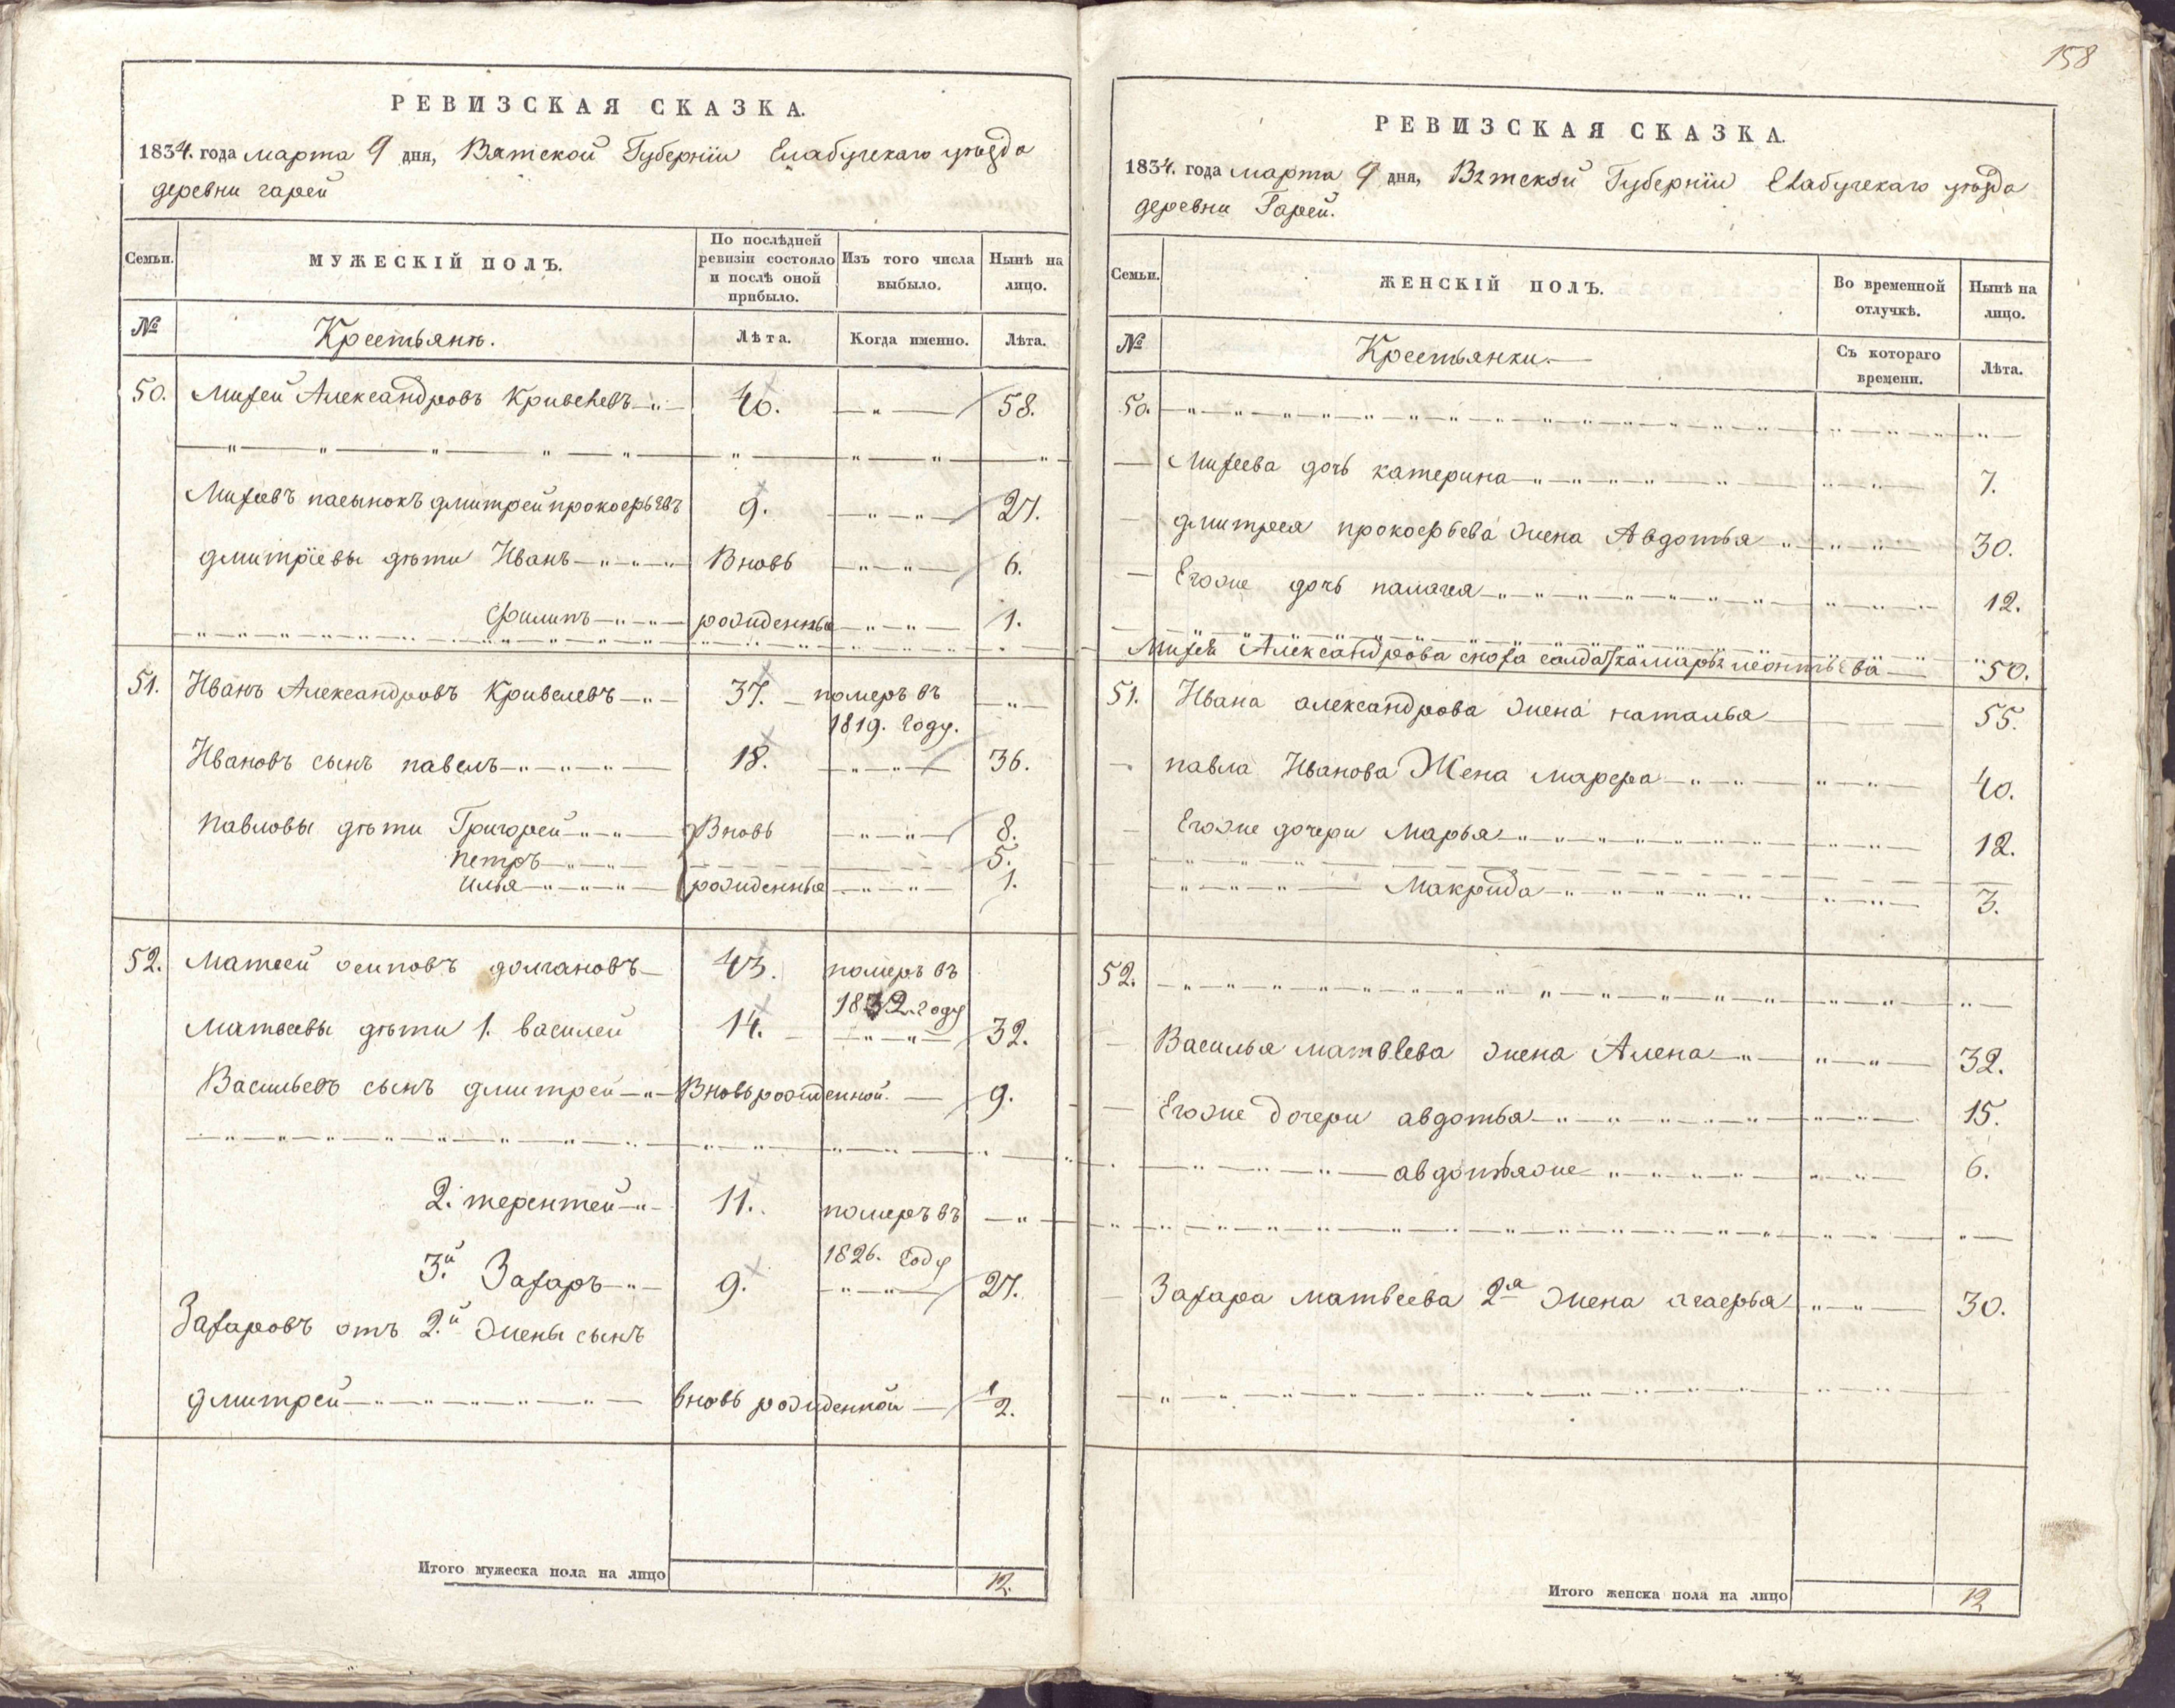 158
РЕВИЗСКАЯ СКАЗКА.
1834. года марта 9 дня, Вятской Губернїи Елабужскаго уѣзда
деревни гарей
Семьи. МУЖЕСКІЙ ПОЛЪ. По послѣдней ревизіи состояло и послѣ оной прибыло. Изъ того числа выбыло. Нынѣ на лицо.
№ Крестьянѣ. Лѣта. Когда именно. Лѣта.
50. Михей Александровъ Кривелевъ 40. 58.
Михеевъ пасынокъ дмитрей прокофьевъ 9. 27.
дмитрїевы дѣти Иванъ Вновь 6.
Филипъ рожденныя 1.
51. Иванъ Александровъ Кривелевъ 37. померъ въ
1819. году.
Ивановъ сынъ павелъ 18. 36.
Павловы дѣти Григорей Вновь 8.
петръ 5.
илья рожденныя 1.
52. Матвей осиповъ долгановъ 43. померъ въ
1832. году
матвеевы дѣти 1. василей 14. 32.
Васильевъ сынъ дмитрей Вновь рожденной 9.
2. терентей 11. померъ въ
1826. году
3й Захаръ 9. 27.
Захаровъ отъ 2й жены сынъ
дмитрей вновь рожденной 1/2.
Итого мужеска пола на лицо 12.
РЕВИЗСКАЯ СКАЗКА.
1834. года марта 9 дня, Вятской Губернїи Елабужскаго уѣзда
деревни Гарей.
Семьи. ЖЕНСКІЙ ПОЛЪ. Во временной отлучкѣ. Нынѣ на лицо.
№ Крестьянки. Съ котораго времени. Лѣта.
50.
Михеева дочь катерина 7.
дмитрея прокофьева жена Авдотья 30.
Егоже дочь палагея 12.
Михея Александрова сноха салдатка марья леонтьева 50.
51. Ивана александрова жена наталья 55.
павла Иванова Жена марфа 40.
Егоже дочери Марья 12.
Макрида 3.
52.
Василья матвеева жена Алена 32.
Егоже дочери авдотья 15.
авдотьяже 6.
Захара матвеева 2я жена агафья 30.
Итого женска пола на лицо 12